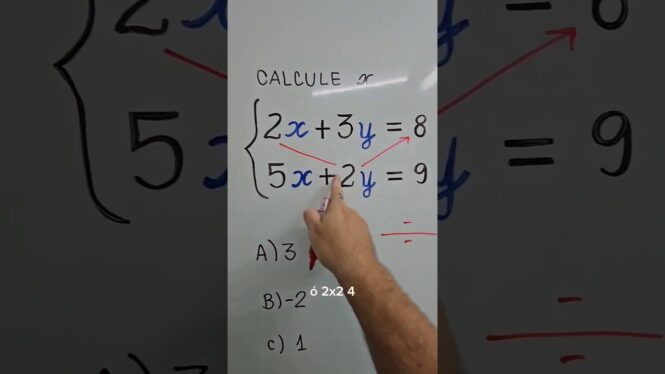 CALCULE x
2x + 3y = 8
5x + 2y = 9
A) 3
B) -2
C) 1
ó 2x2 4